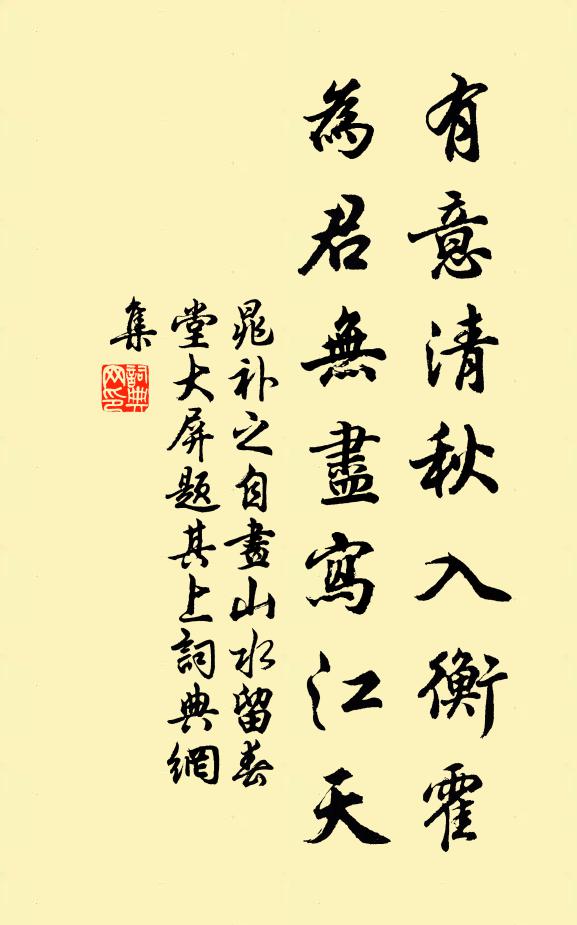 有意清秋入衡霍
為君無盡寫江天
晁补之自畫山水留春
堂大屏题其上詞典網
集
詞典
网印